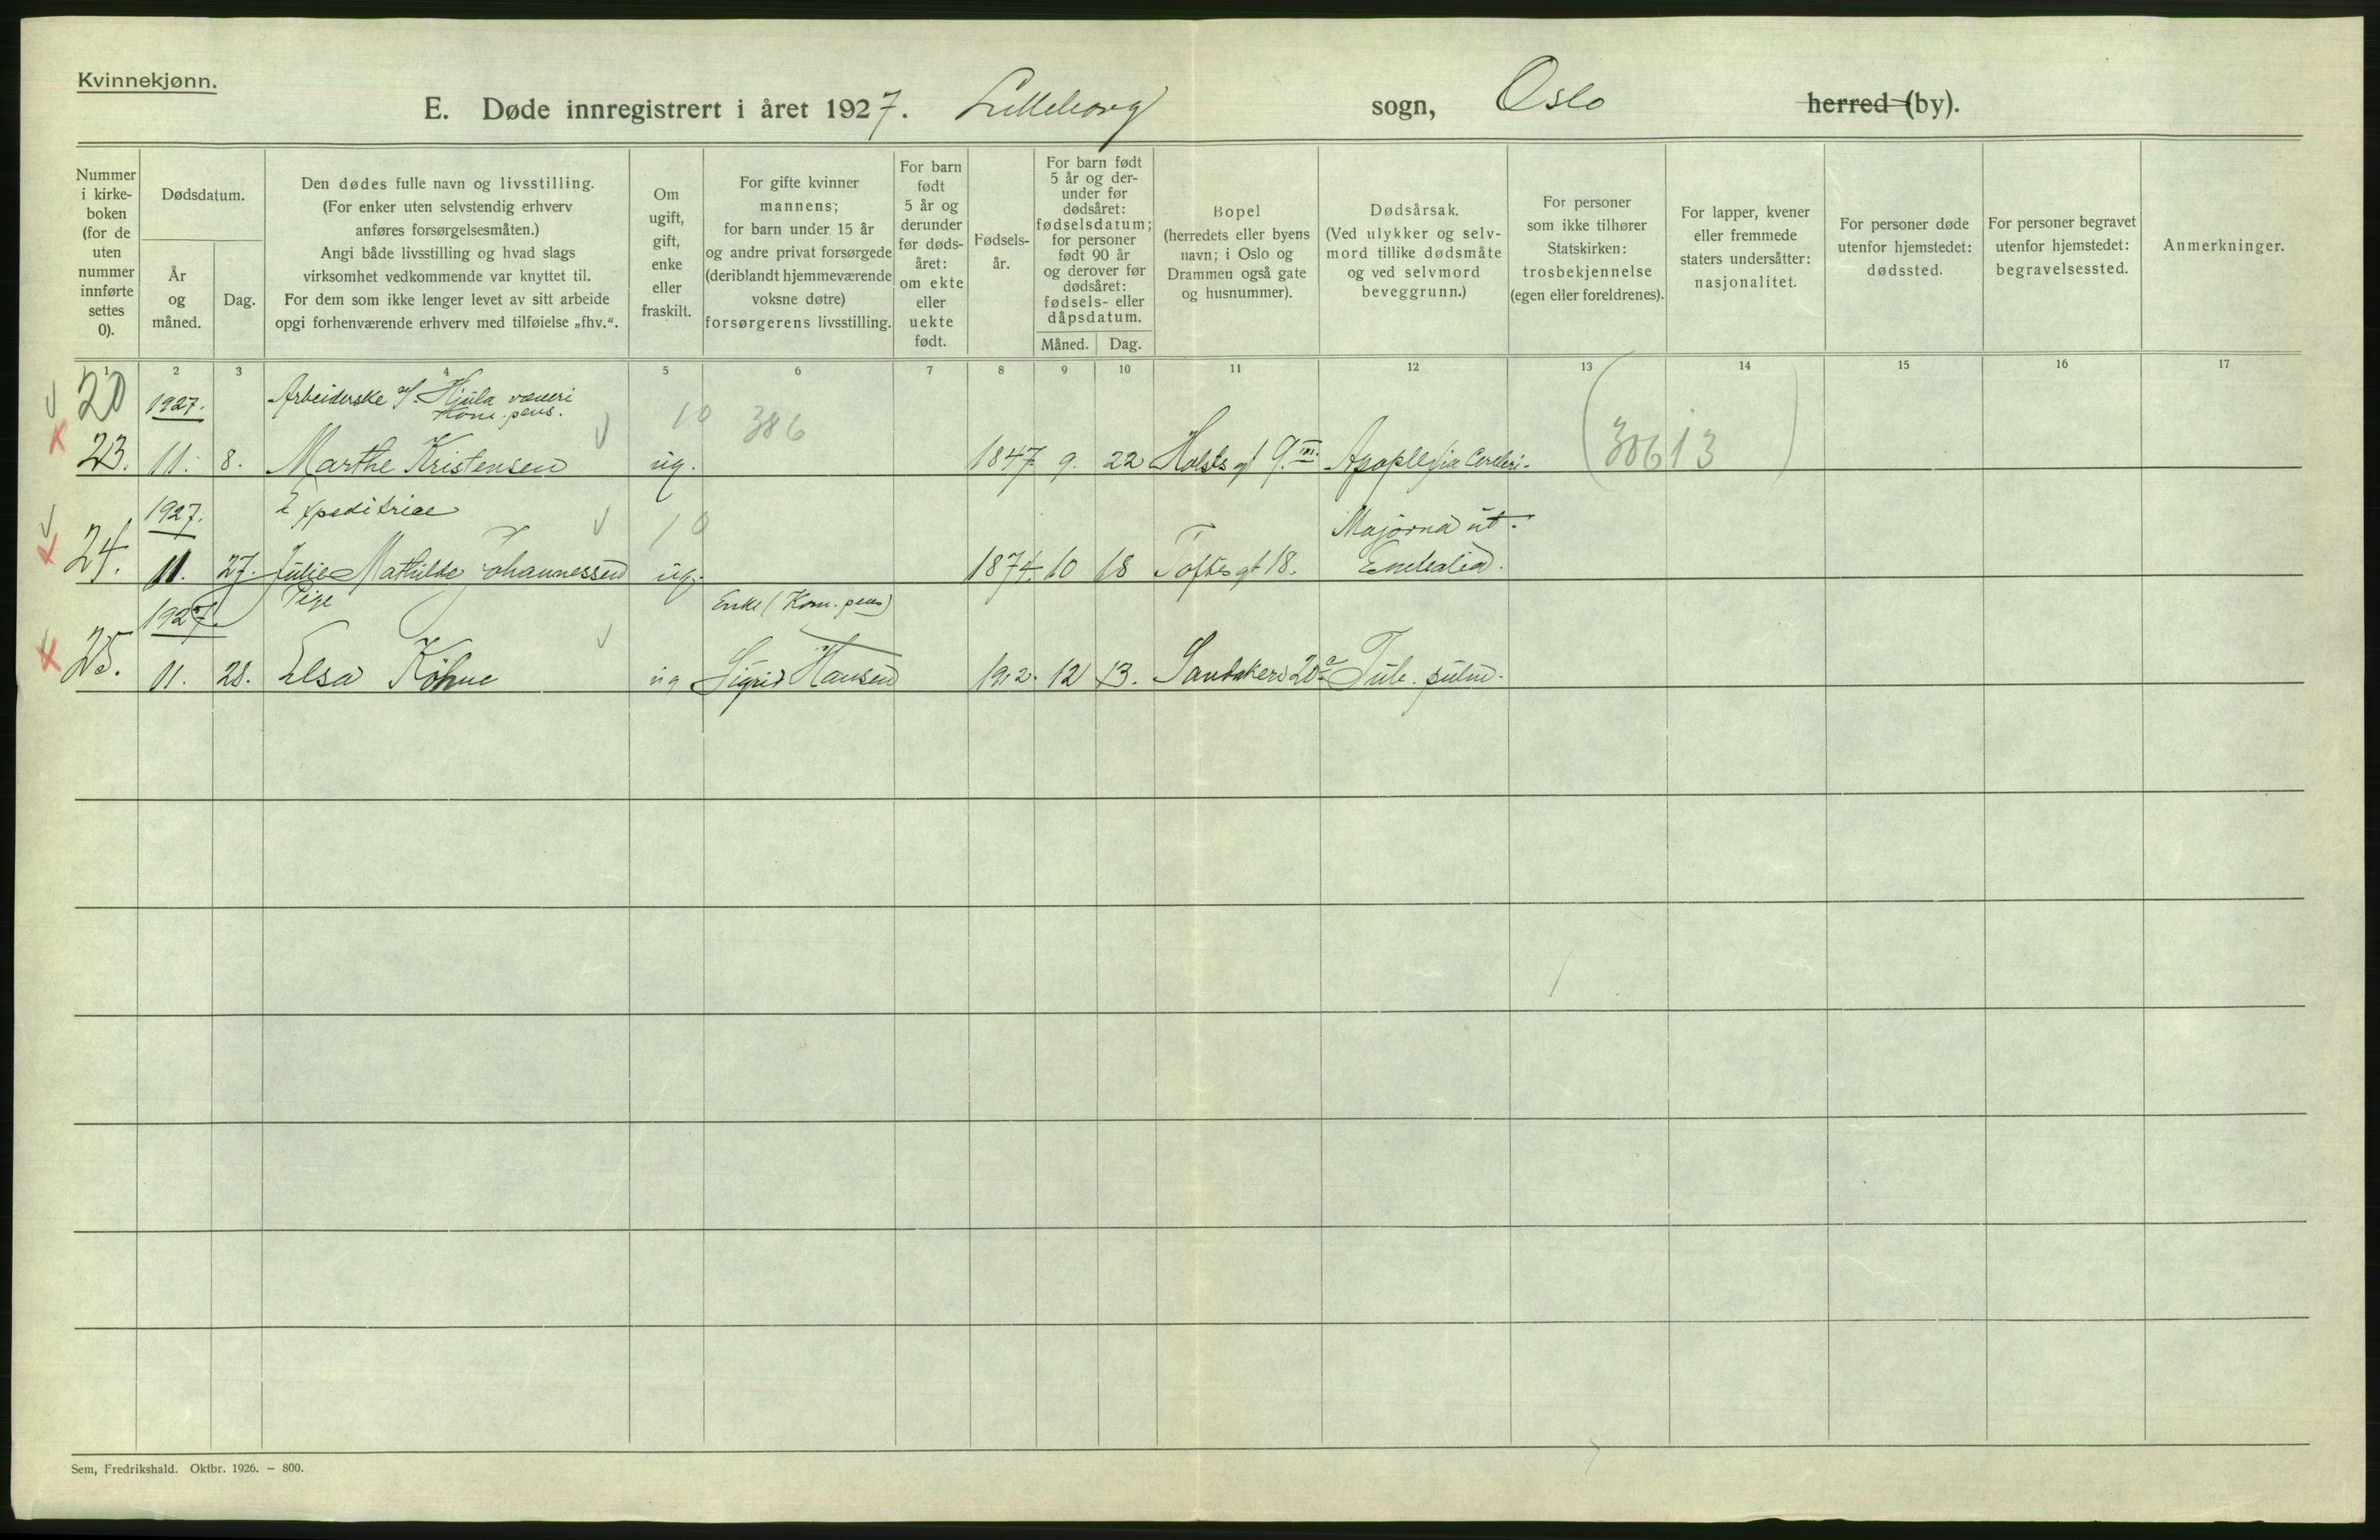 Kvinnekjønn.
E. Døde innregistrert i året 1927. Lilleborg sogn, Oslo herred (by).
Nummer i kirkeboken (for de uten nummer innførte settes 0).
Dødsdatum.
År og måned.
Dag.
Den dødes fulle navn og livsstilling.
(For enker uten selvstendig erhverv
anføres forsørgelsesmåten.)
Angi både livsstilling og hvad slags
virksomhet vedkommende var knyttet til.
For dem som ikke lenger levet av sitt arbeide
opgi forhenværende erhverv med tilføielse „fhv.“.
Om
ugift,
gift,
enke
eller
fraskilt.
For gifte kvinner
mannens;
for barn under 15 år
og andre privat forsørgede
(deriblandt hjemmeværende
voksne døtre)
forsørgerens livsstilling.
For barn
født
5 år og
derunder
før døds-
året:
om ekte
eller
uekte
født.
Fødsels-
år.
For barn født
5 år og der-
under før
dødsåret:
fødselsdatum;
for personer
født 90 år
og derover før
dødsåret:
fødsels- eller
dåpsdatum.
Måned.
Dag.
Bopel
(herredets eller byens
navn; i Oslo og
Drammen også gate
og husnummer).
Dødsårsak.
(Ved ulykker og selv-
mord tillike dødsmåte
og ved selvmord
beveggrunn.)
For personer
som ikke tilhører
Statskirken:
trosbekjennelse
(egen eller foreldrenes).
For lapper, kvener
eller fremmede
staters undersåtter:
nasjonalitet.
For personer døde
utenfor hjemstedet:
dødssted.
For personer begravet
utenfor hjemstedet:
begravelsessted.
Anmerkninger.
1 2 3 4 5 6 7 8 9 10 11 12 13 14 15 16 17
20 1927. Arbeiderske v/ Hjula væveri
Kom. pens.
10 386
23. 11. 8. Marthe Kristensen ug. 1847 9. 22 Holsts gt 9. III. Apoplexia Cerebri. (30613)
1927. Expeditrice 10 Majorna út.
24. 11. 27. Julie Mathilde Johannessen ug. 1874. 10 18 Toftesgt 18.
1927. Pige Enke (Kom. pens)
25. 11. 28. Elsa Köhne ug Sigrid Hansen 1912. 12 13. Sandakerv 20a Tub. pulm.
Sem, Fredrikshald. Oktbr. 1926. – 800.